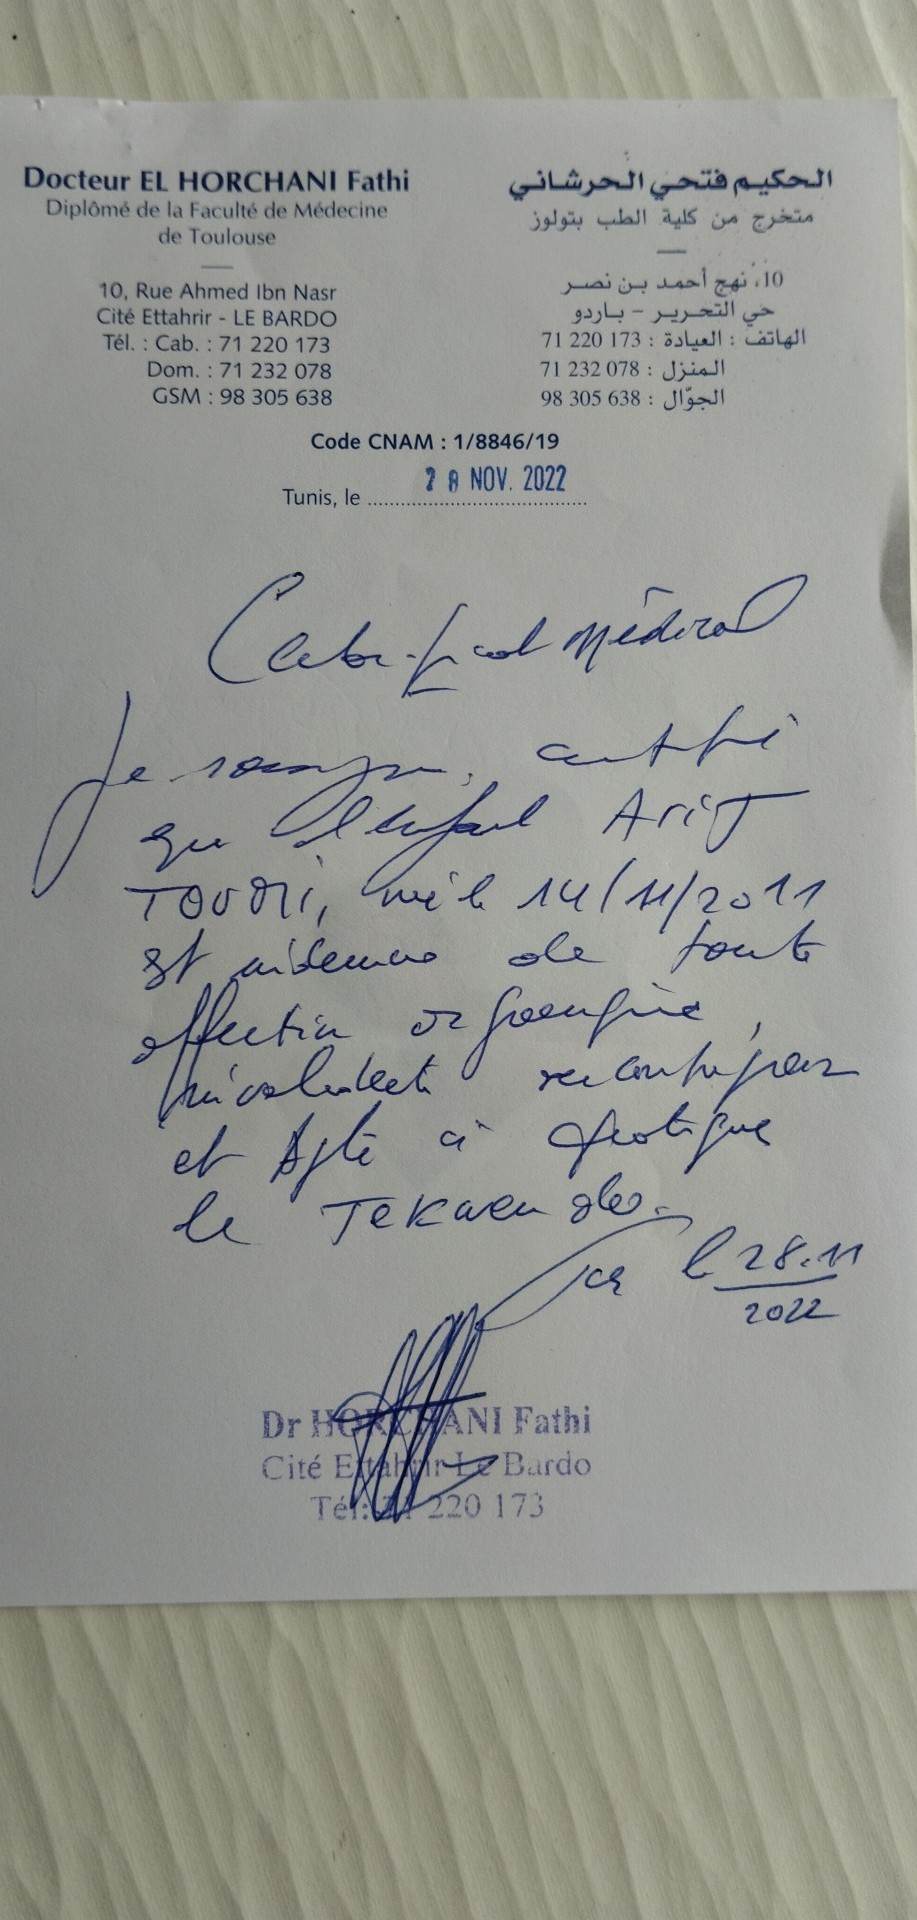 Docteur EL HORCHANI Fathi
Diplômé de la Faculté de Médecine
de Toulouse
10, Rue Ahmed Ibn Nasr
Cité Ettahrir - LE BARDO
Tél. : Cab. : 71 220 173
Dom. : 71 232 078
GSM : 98 305 638
الحكيم فتحي الحرشاني
متخرج من كلية الطب بتولوز
10، نهج أحمد بن نصر
حي التحرير - باردو
الهاتف : العيادة : 173 220 71
المنزل : 078 232 71
الجوّال : 638 305 98
Code CNAM : 1/8846/19
Tunis, le 28 NOV. 2022
Certificat Médical
Je certifie
que l'enfant Arij
né le 14/11/2011
est de toute
affection
et Apte à pratiquer
le TeKwendo.
le 28.11
2022
Dr HORCHANI Fathi
Cité Ettahrir Le Bardo
Tél: 71 220 173